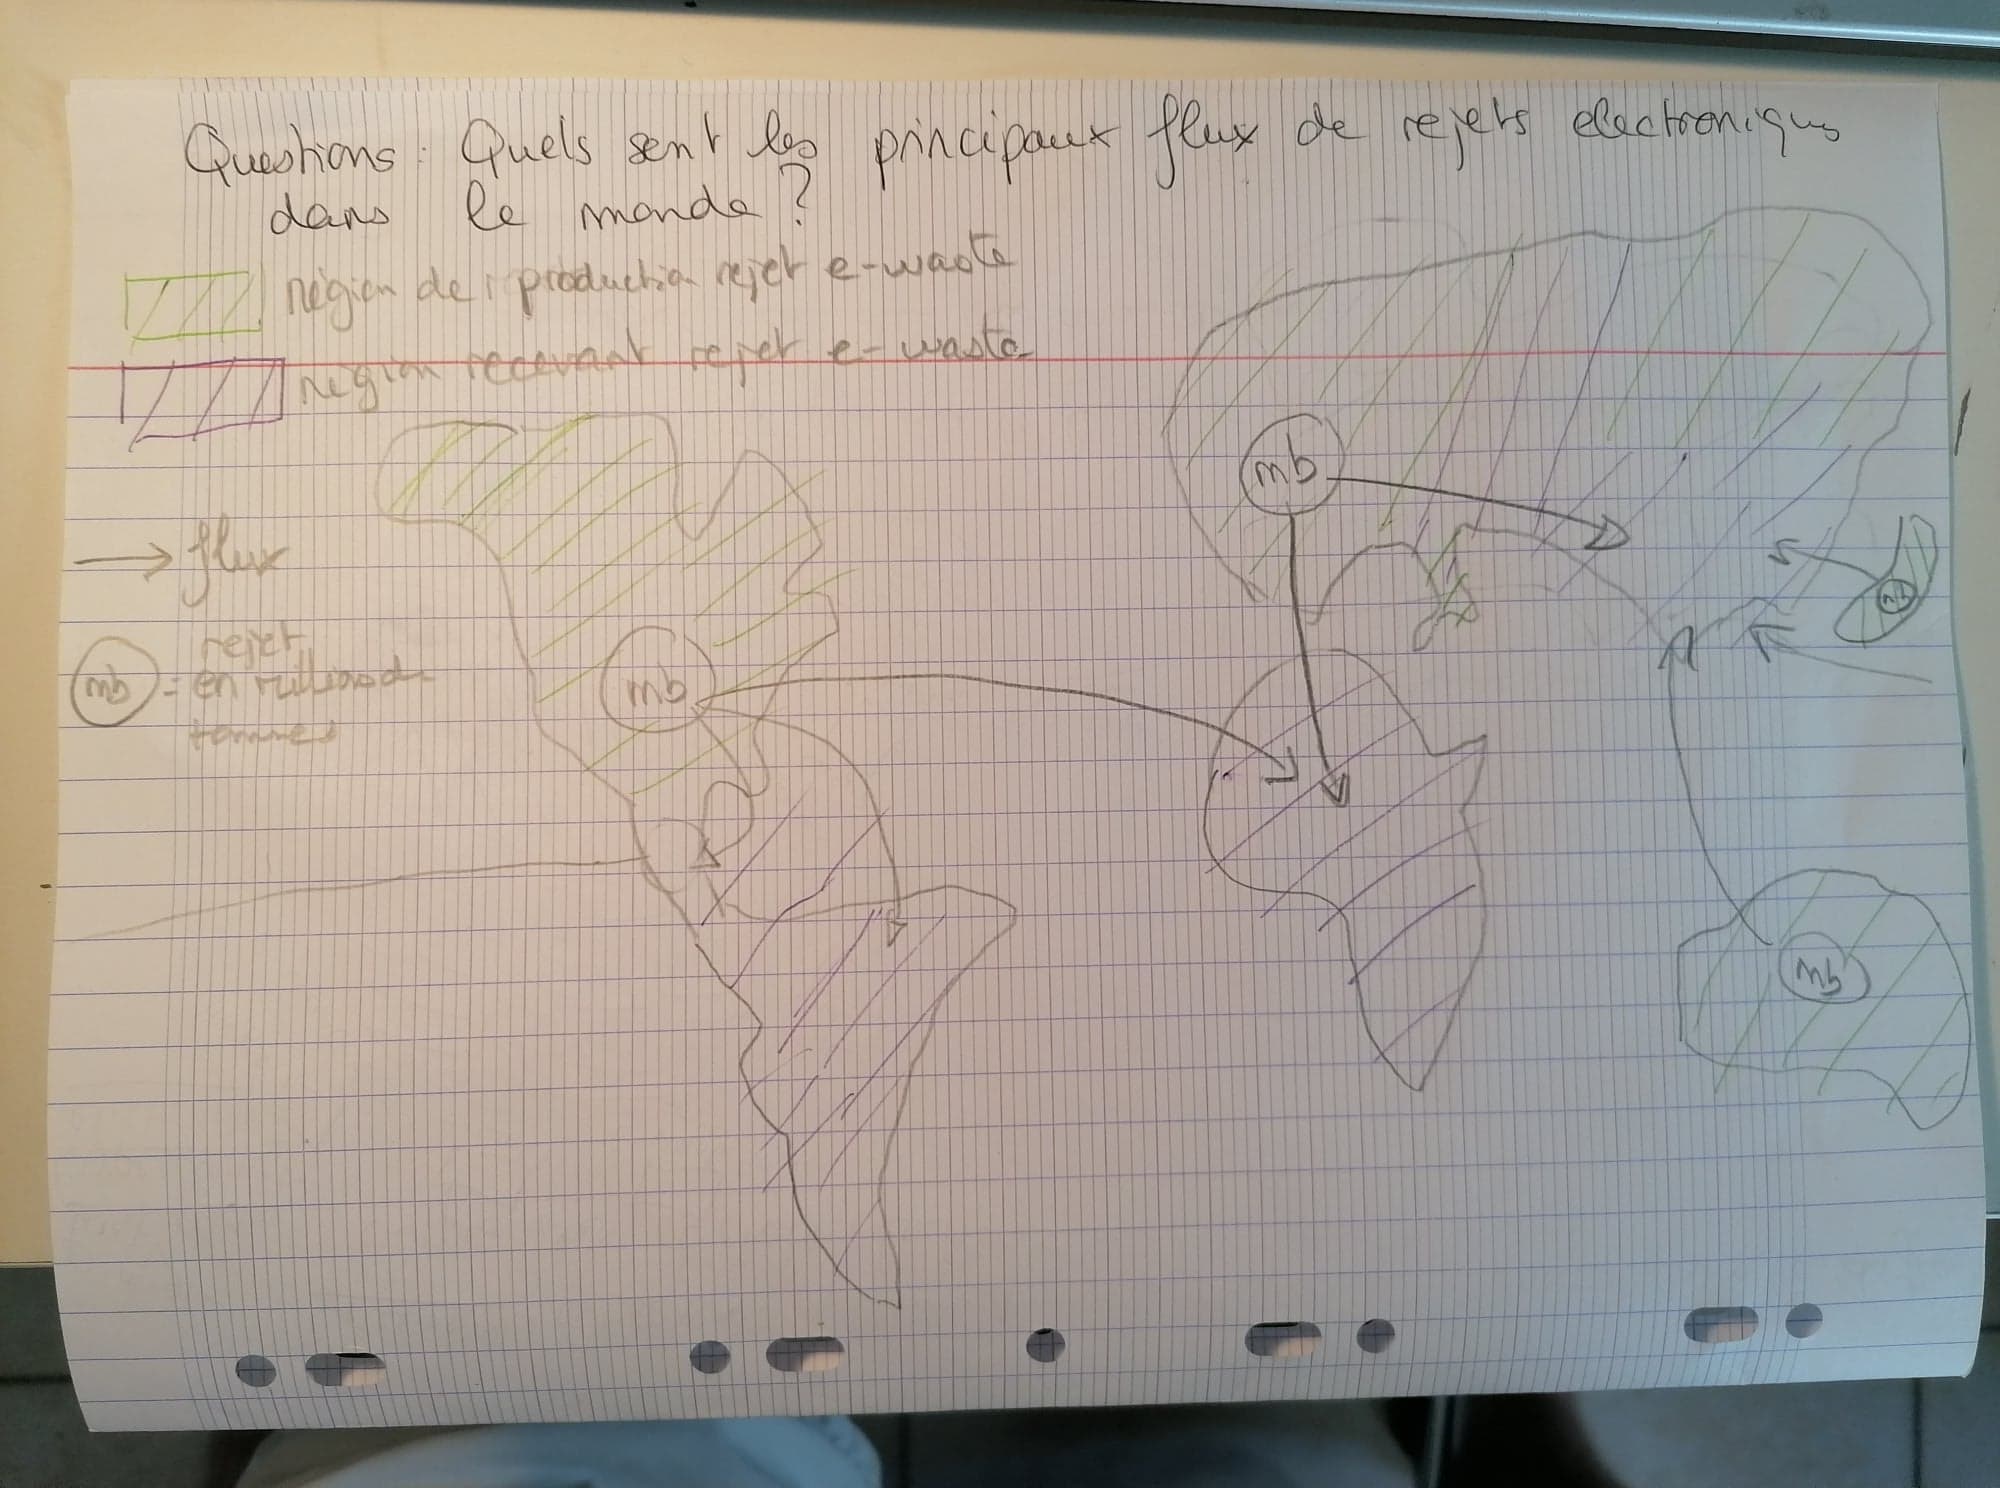 Questions : Quels sont les principaux flux de rejets electroniques
dans le monde ?
région de production rejet e-waste
région recevant rejet e-waste
flux
mb = rejet
en millions de
tonnes
mb
mb
mb
mb